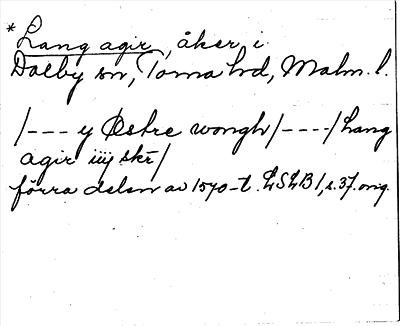 * Lang agir, åker i
Dalby sn, Torna hd, Malm. l.
/--- y Østre wongh/----/Lang
agir iiij skr/
förra delen av 1570-t. LSLB 1, s. 37. orig.